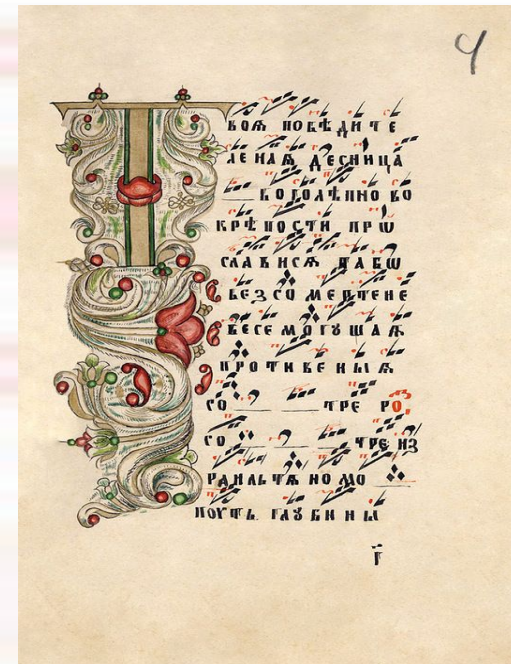 Твоѧ побѣдите
ленаѧ десница
боголѣпно во
крѣпости прѡ
слависѧ та бѡ
безсо мертене
весемогушаѧ
противеныѧ
со тре
со тре из
раильтѧномо
поуть глубины
г̈